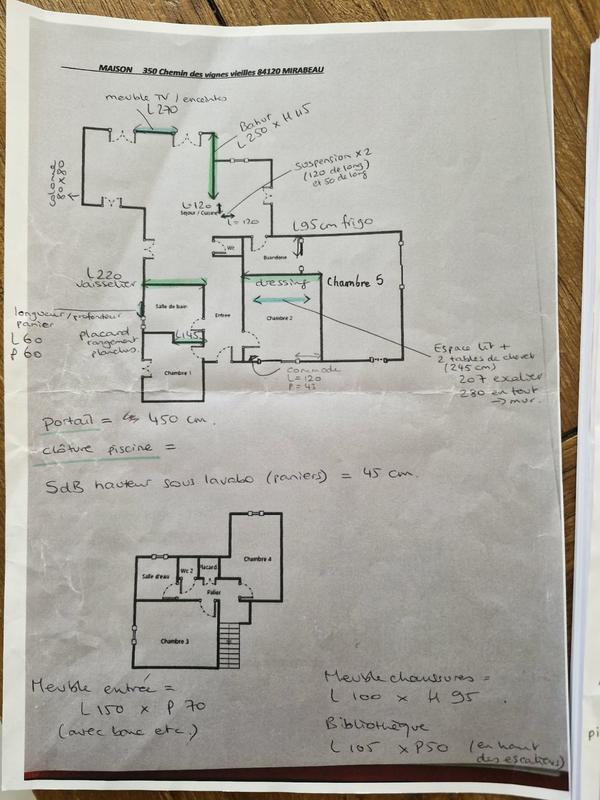 MAISON 350 Chemin des vignes vieilles 84120 MIRABEAU
meuble TV / enceintes
L270
Bahut
L250 x H45
Suspension x 2
(120 de long)
et 50 de long
L=120
Séjour / Cuisine
L=120
L95cm frigo
Wc
Buanderie
L220
vaisselier
dressing
Chambre 5
Salle de bain
Entree
Chambre 2
longueur/profondeur
panier
L60
P 60
placard
rangement
L145
Chambre 1
Commode
L = 120
P = 43
Espace lit +
2 tables de chevet
(245 cm)
207 escalier
280 en tout
→ mur.
Portail = 450 cm.
clôture piscine =
SdB hauteur sous lavabo (paniers) = 45 cm.
Chambre 4
Salle d'eau
Wc 2
Placard
Palier
Chambre 3
Meuble entrée =
L150 x P 70
(avec banc etc.)
Meuble chaussures =
L 100 x H 95 .
Bibliothèque
L 105 x P50 (en haut
des escaliers)
pi